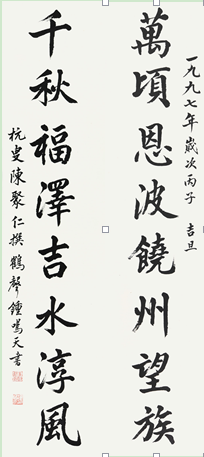 一九九七年歲次丙子 吉旦
萬頃恩波饒州望族
千秋福澤吉水淳風
杭叟陳聚仁撰 鶴聲鍾鳴天書